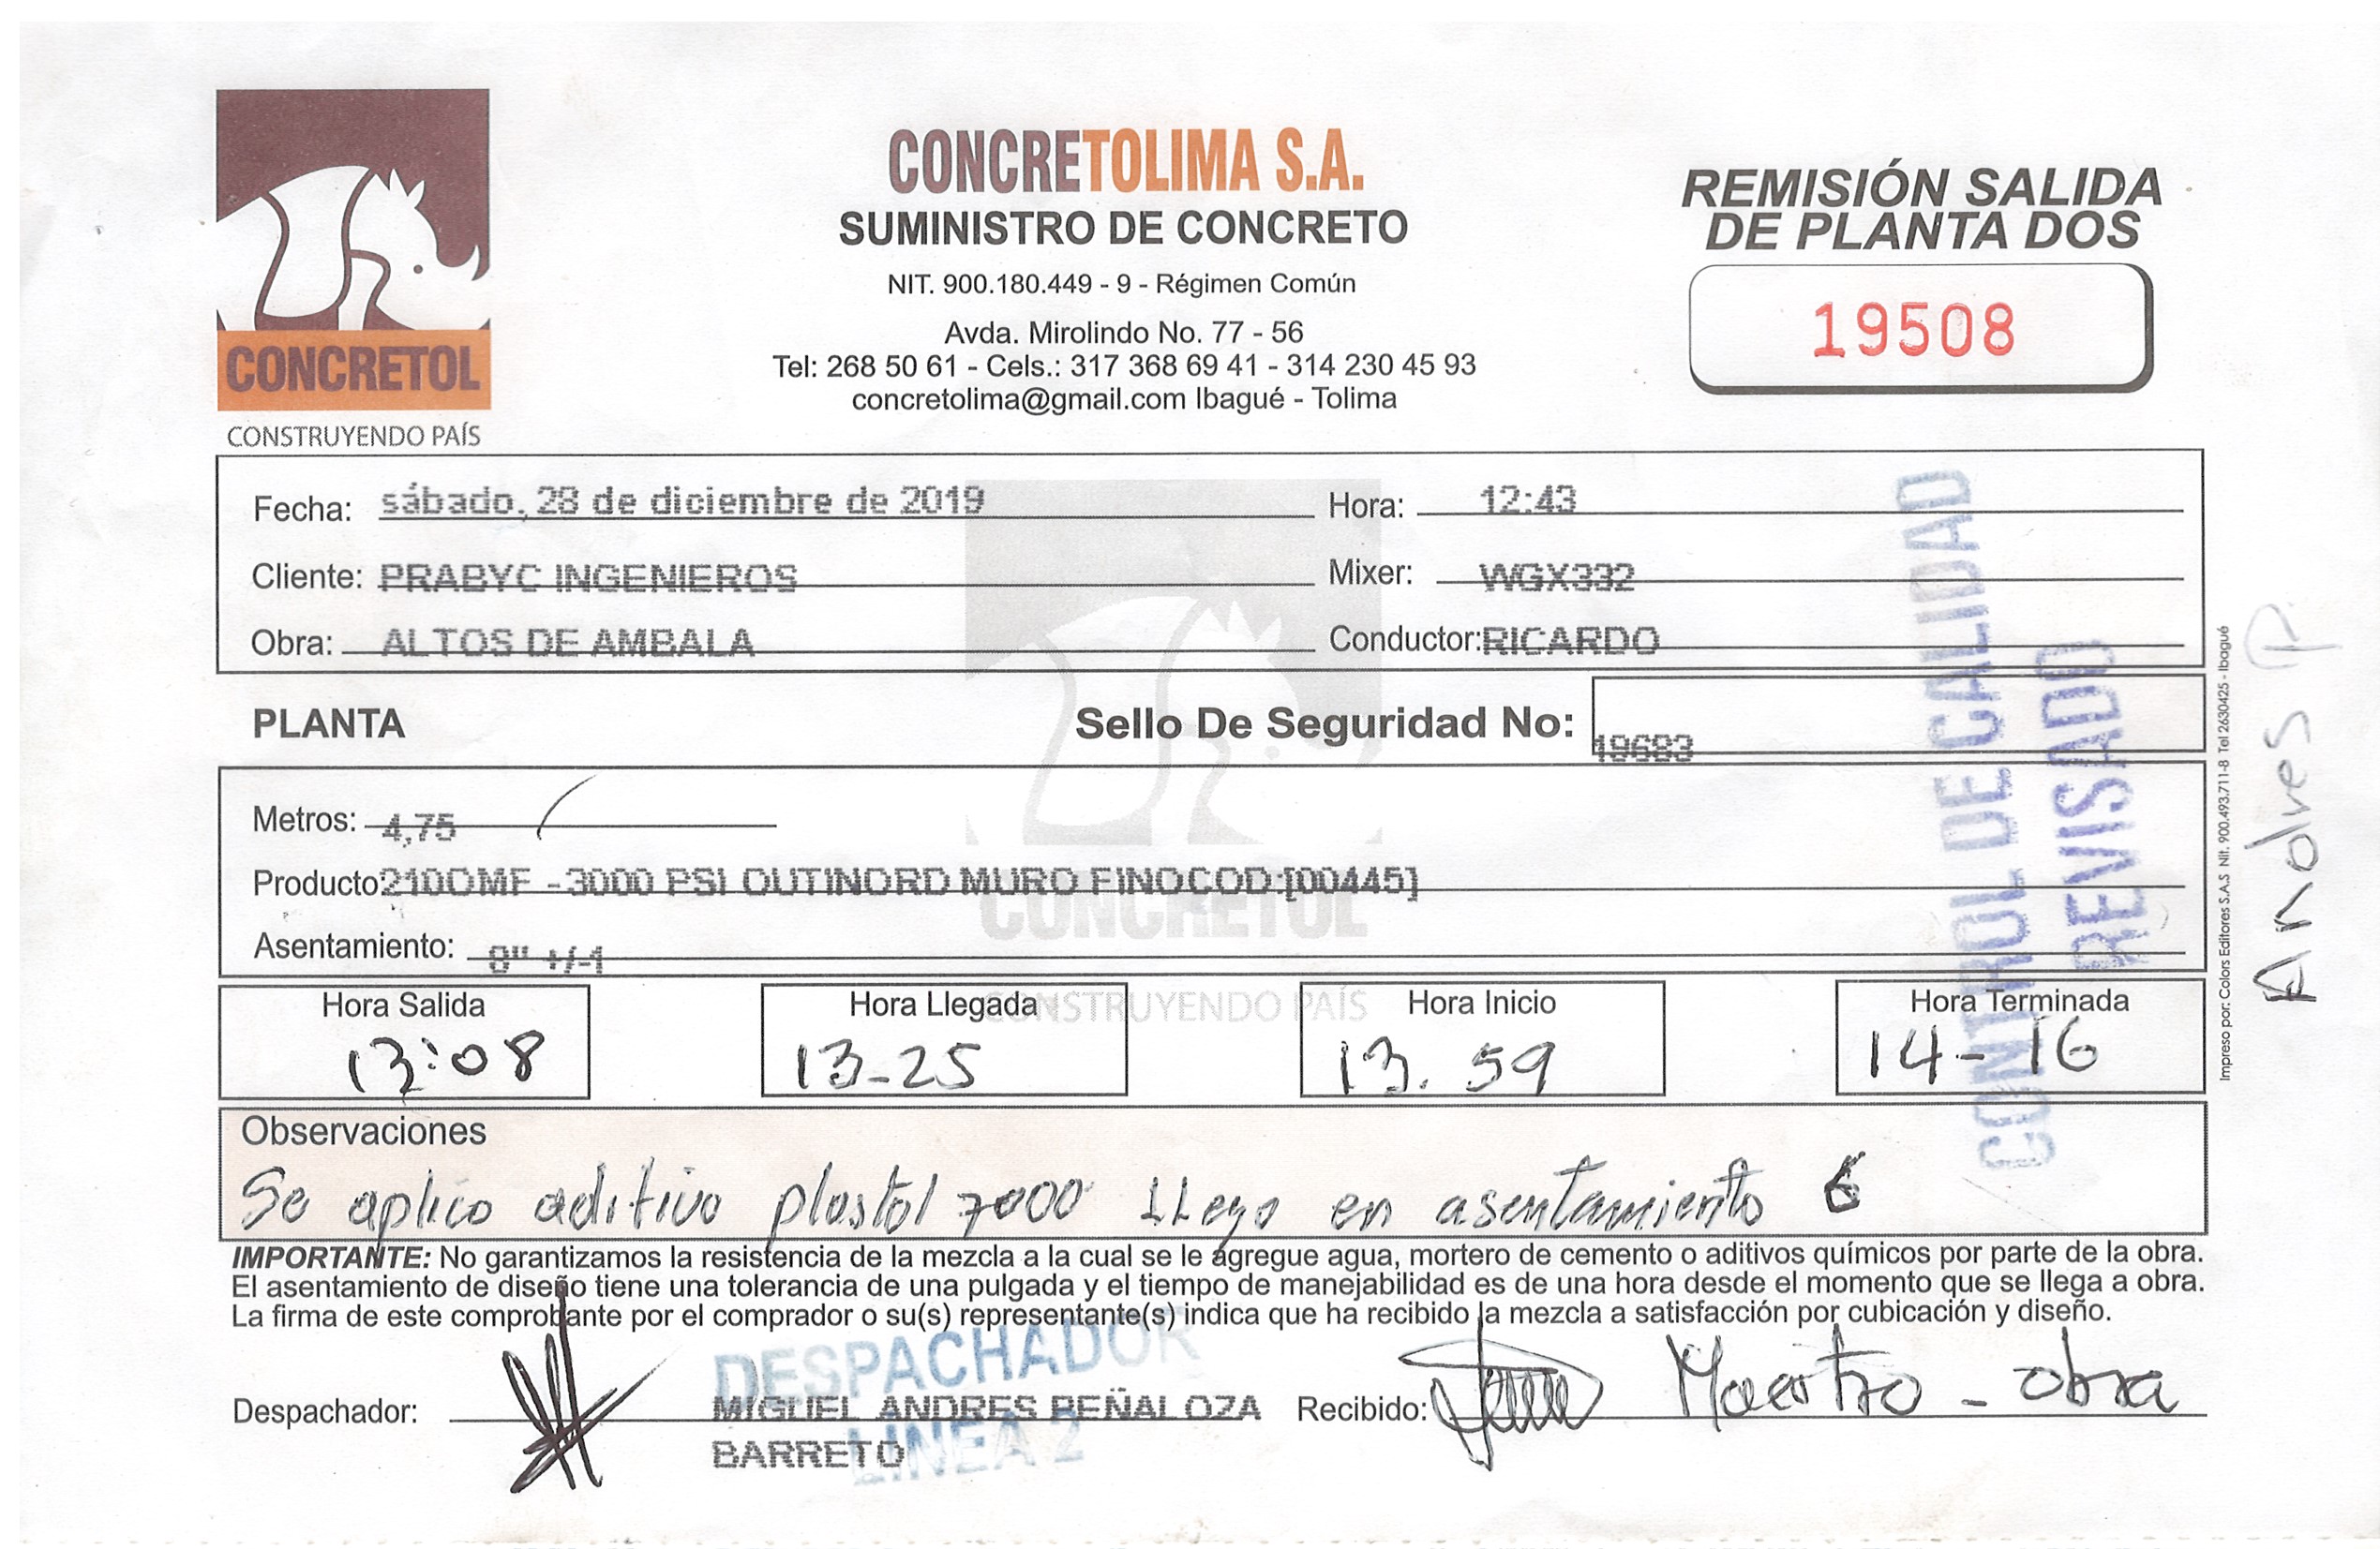 CONCRETOL
CONSTRUYENDO PAÍS
CONCRETOLIMA S.A.
SUMINISTRO DE CONCRETO
NIT. 900.180.449 - 9 - Régimen Común
Avda. Mirolindo No. 77 - 56
Tel: 268 50 61 - Cels.: 317 368 69 41 - 314 230 45 93
concretolima@gmail.com Ibagué - Tolima
REMISIÓN SALIDA
DE PLANTA DOS
19508
Fecha: sábado, 28 de diciembre de 2019 Hora: 12:43
Cliente: PRABYC INGENIEROS Mixer: WGX332
Obra: ALTOS DE AMBALA Conductor: RICARDO
PLANTA Sello De Seguridad No: 19683
Metros: 4,75
Producto 210OMF - 3000 PSI OUTINORD MURO FINOCOD:[00445]
Asentamiento: 8" +/-1
CONCRETOL
CONSTRUYENDO PAÍS
Hora Salida Hora Llegada Hora Inicio Hora Terminada
13:08 13-25 13. 59 14-16
Observaciones
Se aplico aditivo plastol 7000 LLego en asentamiento 6
IMPORTANTE: No garantizamos la resistencia de la mezcla a la cual se le agregue agua, mortero de cemento o aditivos químicos por parte de la obra.
El asentamiento de diseño tiene una tolerancia de una pulgada y el tiempo de manejabilidad es de una hora desde el momento que se llega a obra.
La firma de este comprobante por el comprador o su(s) representante(s) indica que ha recibido la mezcla a satisfacción por cubicación y diseño.
Despachador: MIGUEL ANDRES PEÑALOZA Recibido: Maestro - obra
BARRETO
DESPACHADOR
LINEA 2
CONTROL DE CALIDAD
REVISADO
Impreso por: Colors Editores S.A.S Nit. 900.493.711-8 Tel 2630425 - Ibagué
Andres P.